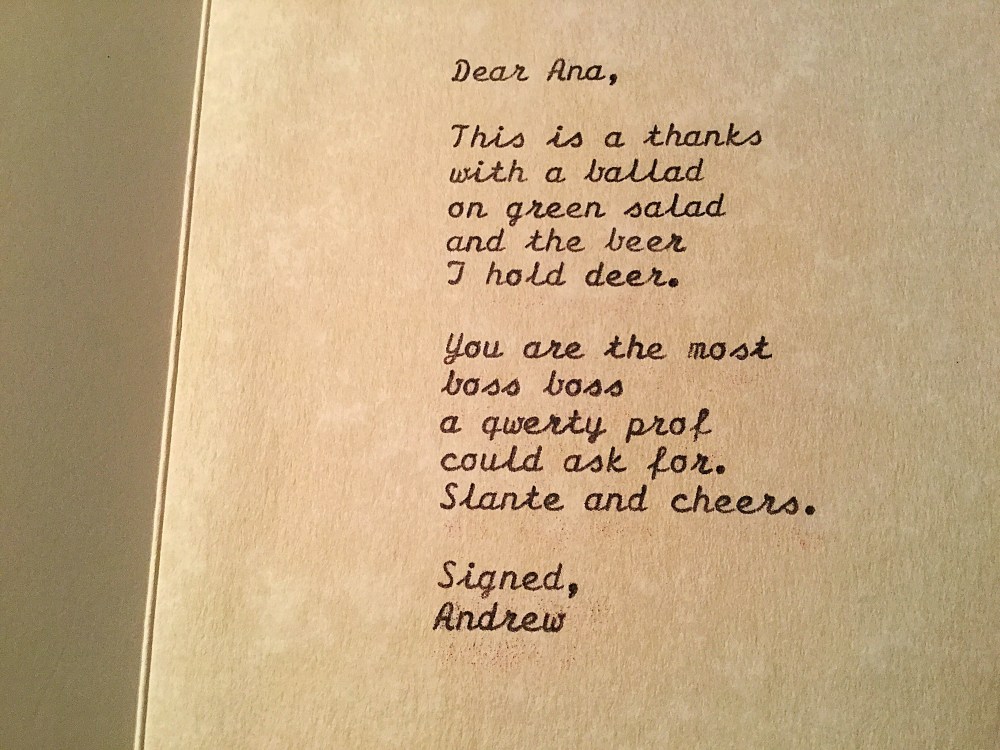 Dear Ana,
This is a thanks
with a ballad
on green salad
and the beer
I hold deer.
You are the most
boss boss
a qwerty prof
could ask for.
Slante and cheers.
Signed,
Andrew